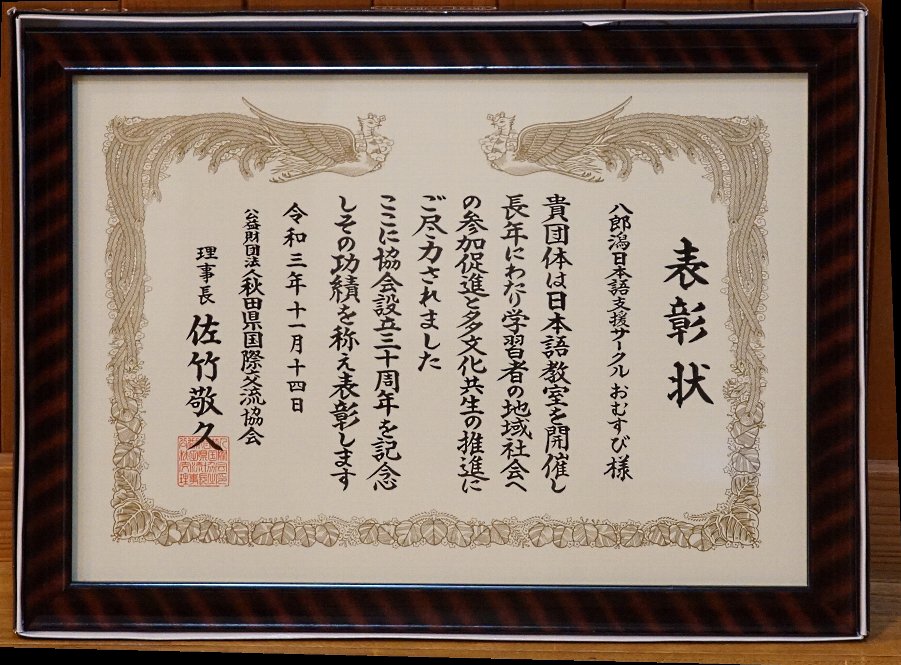 表彰状
八郎潟日本語支援サークル おむすび 様
貴団体は日本語教室を開催し
長年にわたり学習者の地域社会へ
の参加促進と多文化共生の推進に
ご尽力されました
ここに協会設立三十周年を記念
しその功績を称え表彰します
令和三年十一月十四日
公益財団法人秋田県国際交流協会
理事長 佐竹敬久